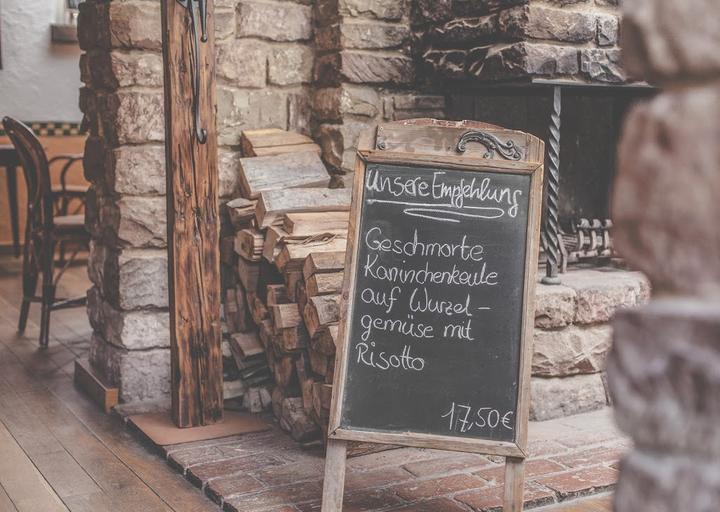 Unsere Empfehlung
Geschmorte
Kaninchenkeule
auf Wurzel-
gemüse mit
Risotto
17,50€